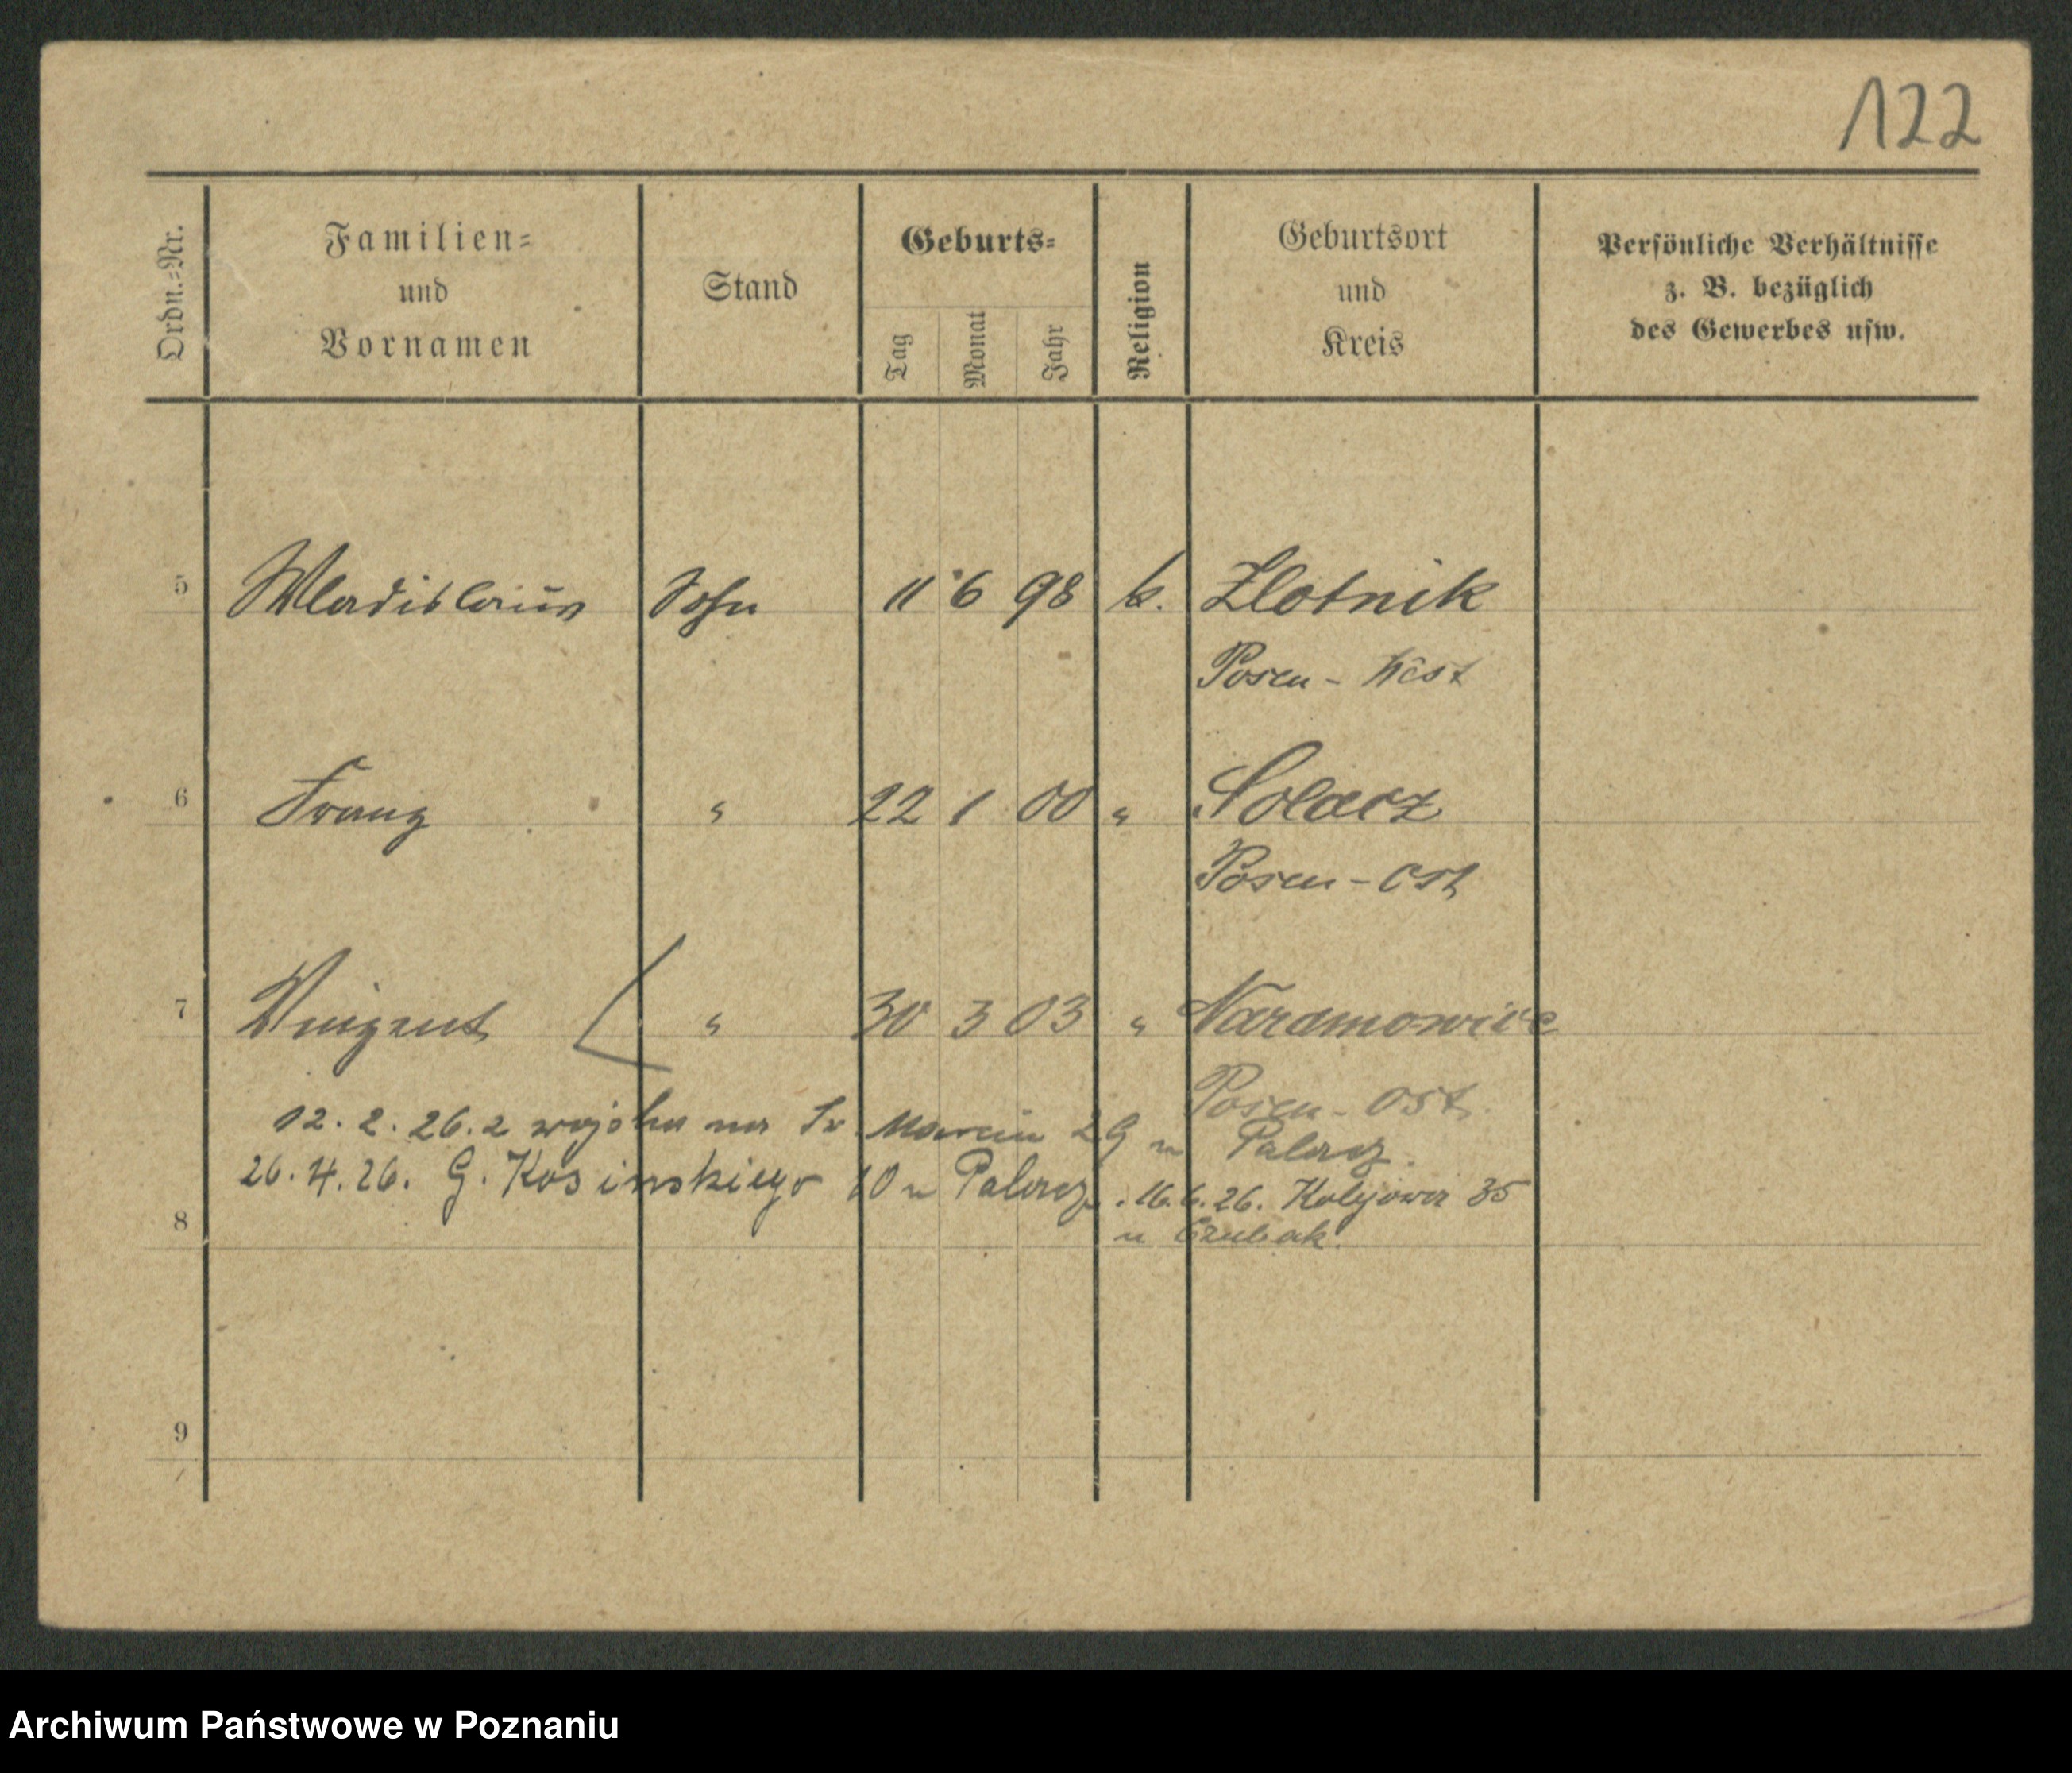 122
Ordn.-Nr.
Familien-
und
Vornamen
Stand
Geburts-
Tag
Monat
Jahr
Religion
Geburtsort
und
Kreis
Persönliche Verhältnisse
z. B. bezüglich
des Gewerbes usw.
5 Wladislaus Sohn 11 6 98 k. Zlotnik
Posen - West
6 Franz " 22 1 00 " Solacz
Posen - Ost
7 Vinzent " 30 3 03 " Naramowice
Posen - Ost.
12. 2. 26. z wojska na Św. Marcin 29 u Palacz.
26. 4. 26. G. Kosinskiego 10 u Palacz. 16. 6. 26. Kolejowa 35
u Czubak.
8
9
Archiwum Państwowe w Poznaniu